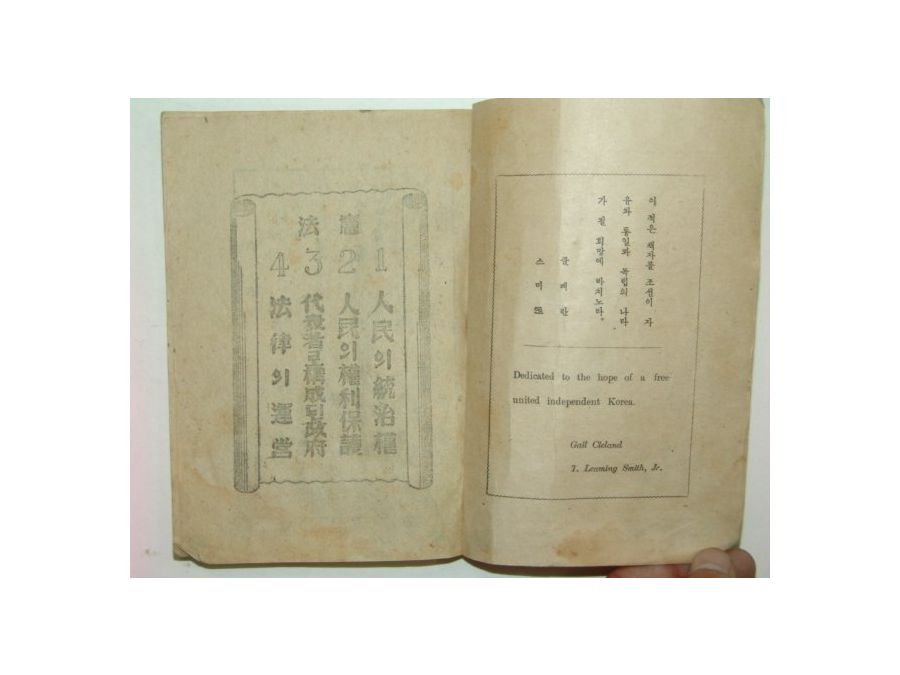 이 적은 책자를 조선이 자
유와 통일과 독립의 나라
가 될 희망에 바치노라。
클 레 란
스 미
Dedicated to the hope of a free
united independent Korea.
Gail Cleland
T. Leaming Smith, Jr.
憲法
1 人民의統治權
2 人民의權利保護
3 代表者로構成된政府
4 法律의運營